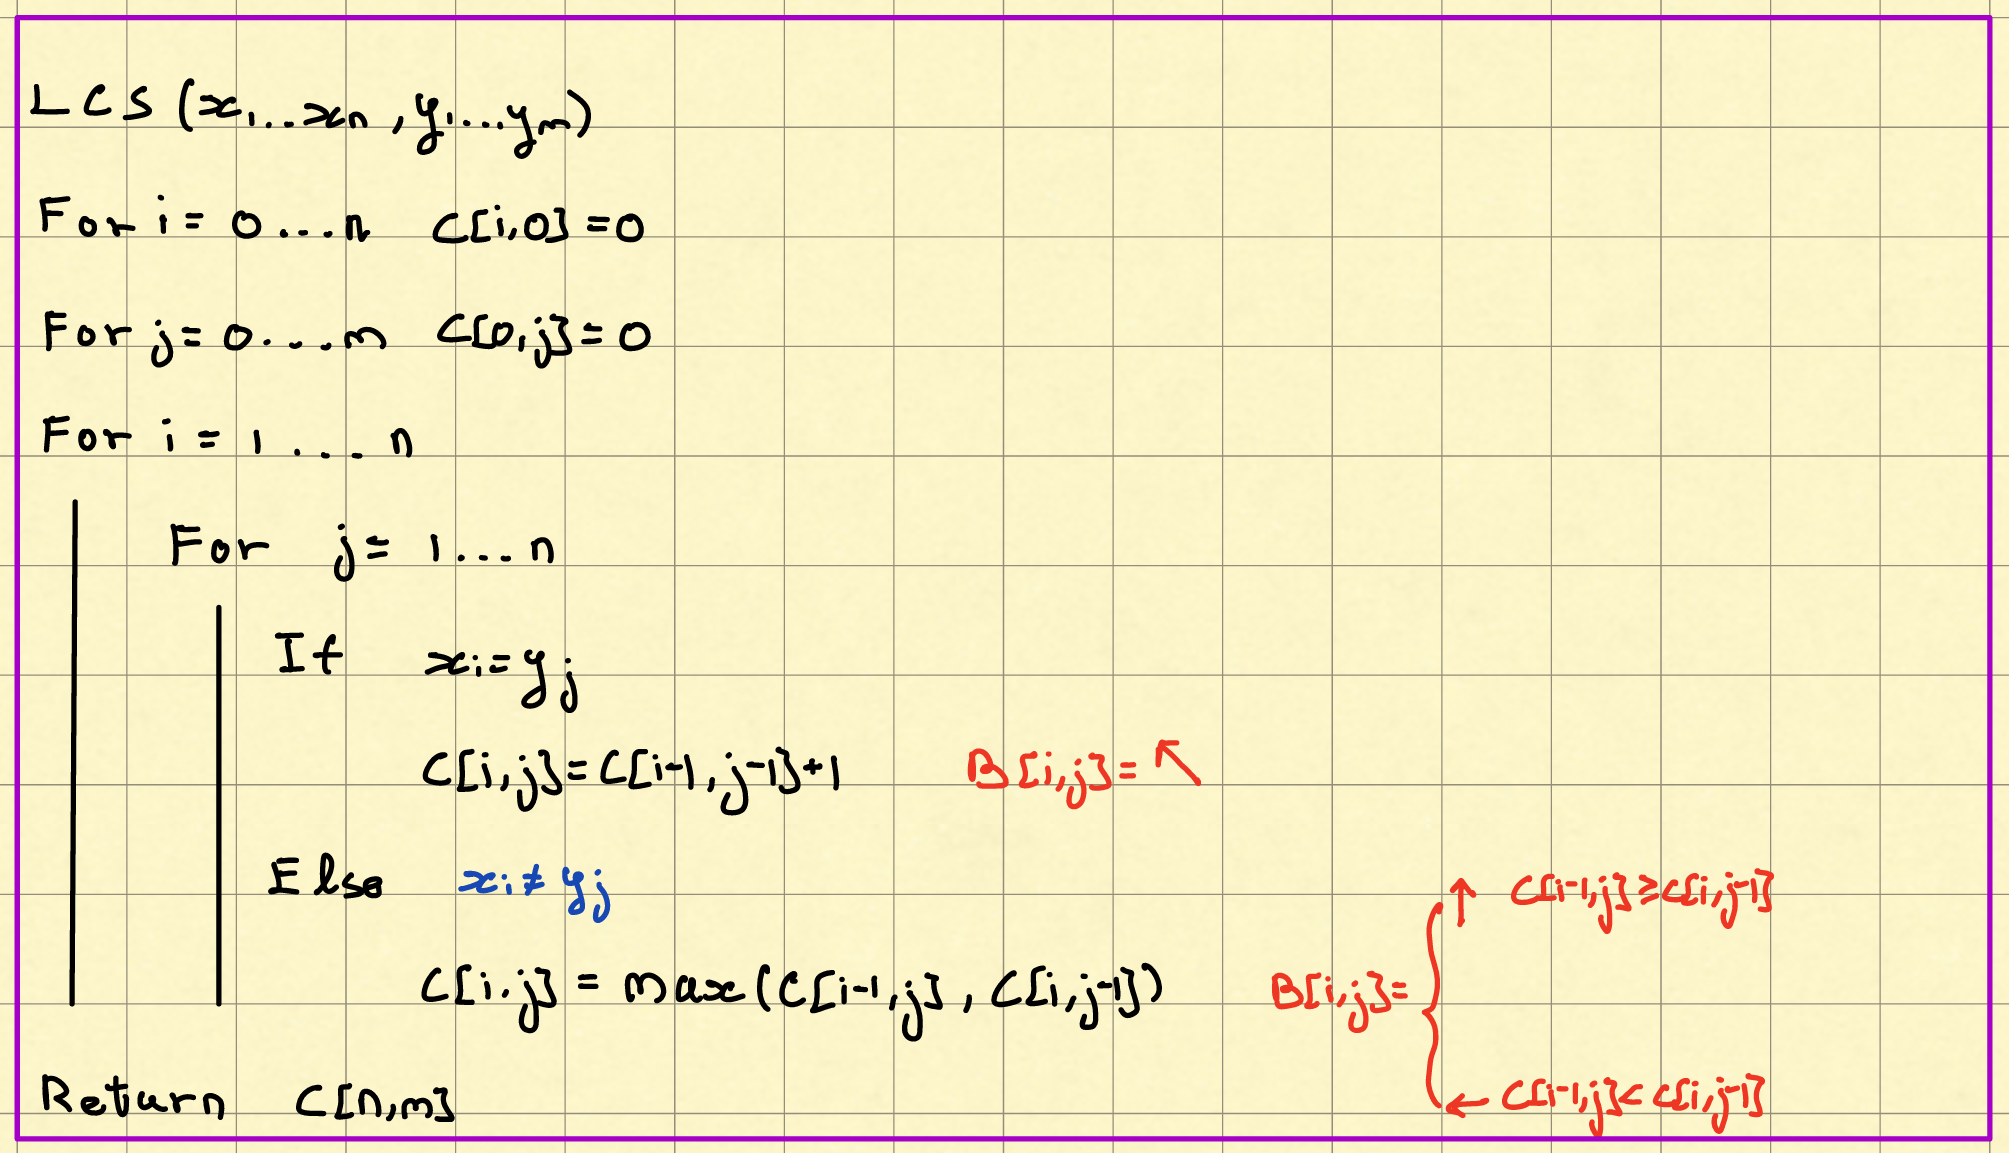 LCS (x₁...xn , y₁...ym)
For i = 0 ... n C[i,0] = 0
For j = 0 ... m C[0,j] = 0
For i = 1 .... n
For j = 1 ... n
If xi = yj
C[i,j] = C[i-1, j-1] + 1 B[i,j] = ↖
Else xi ≠ yj
↑ C[i-1,j] ≥ C[i,j-1]
C[i.j] = max(C[i-1,j] , C[i,j-1]) B[i,j] = {
← C[i-1,j] < C[i,j-1]
Return C[n,m]